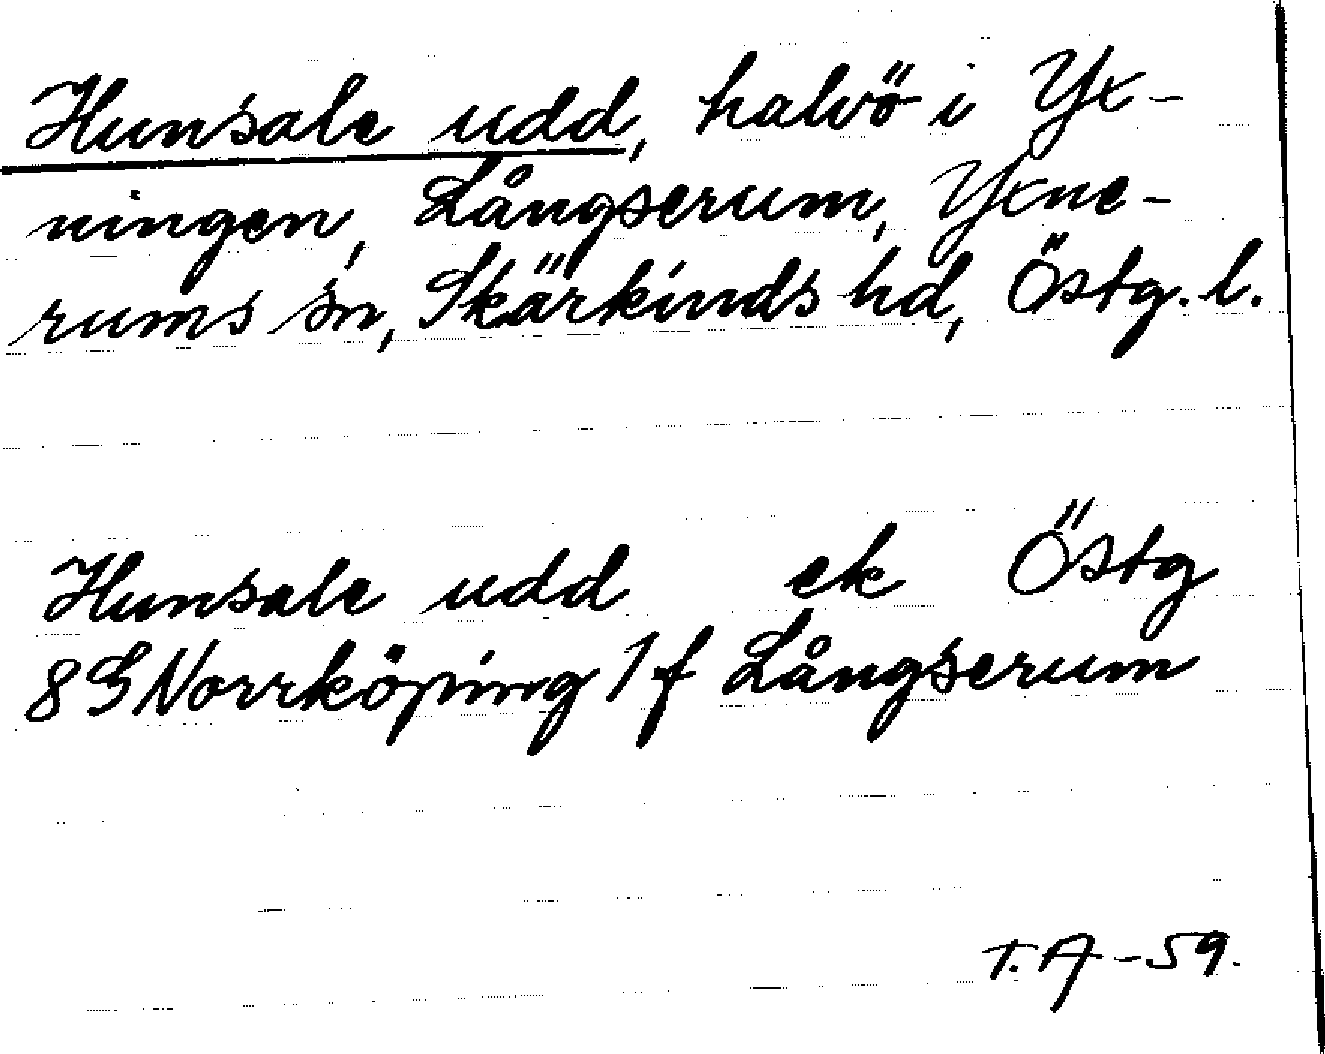 Hunsale udd, halvö i Yx-
ningen, Långserum, Yxne-
rums sn, Skärkinds hd, Östg. l.
Hunsale udd ek Östg
8 S Norrköping 1 f Långserum
T. A -59.